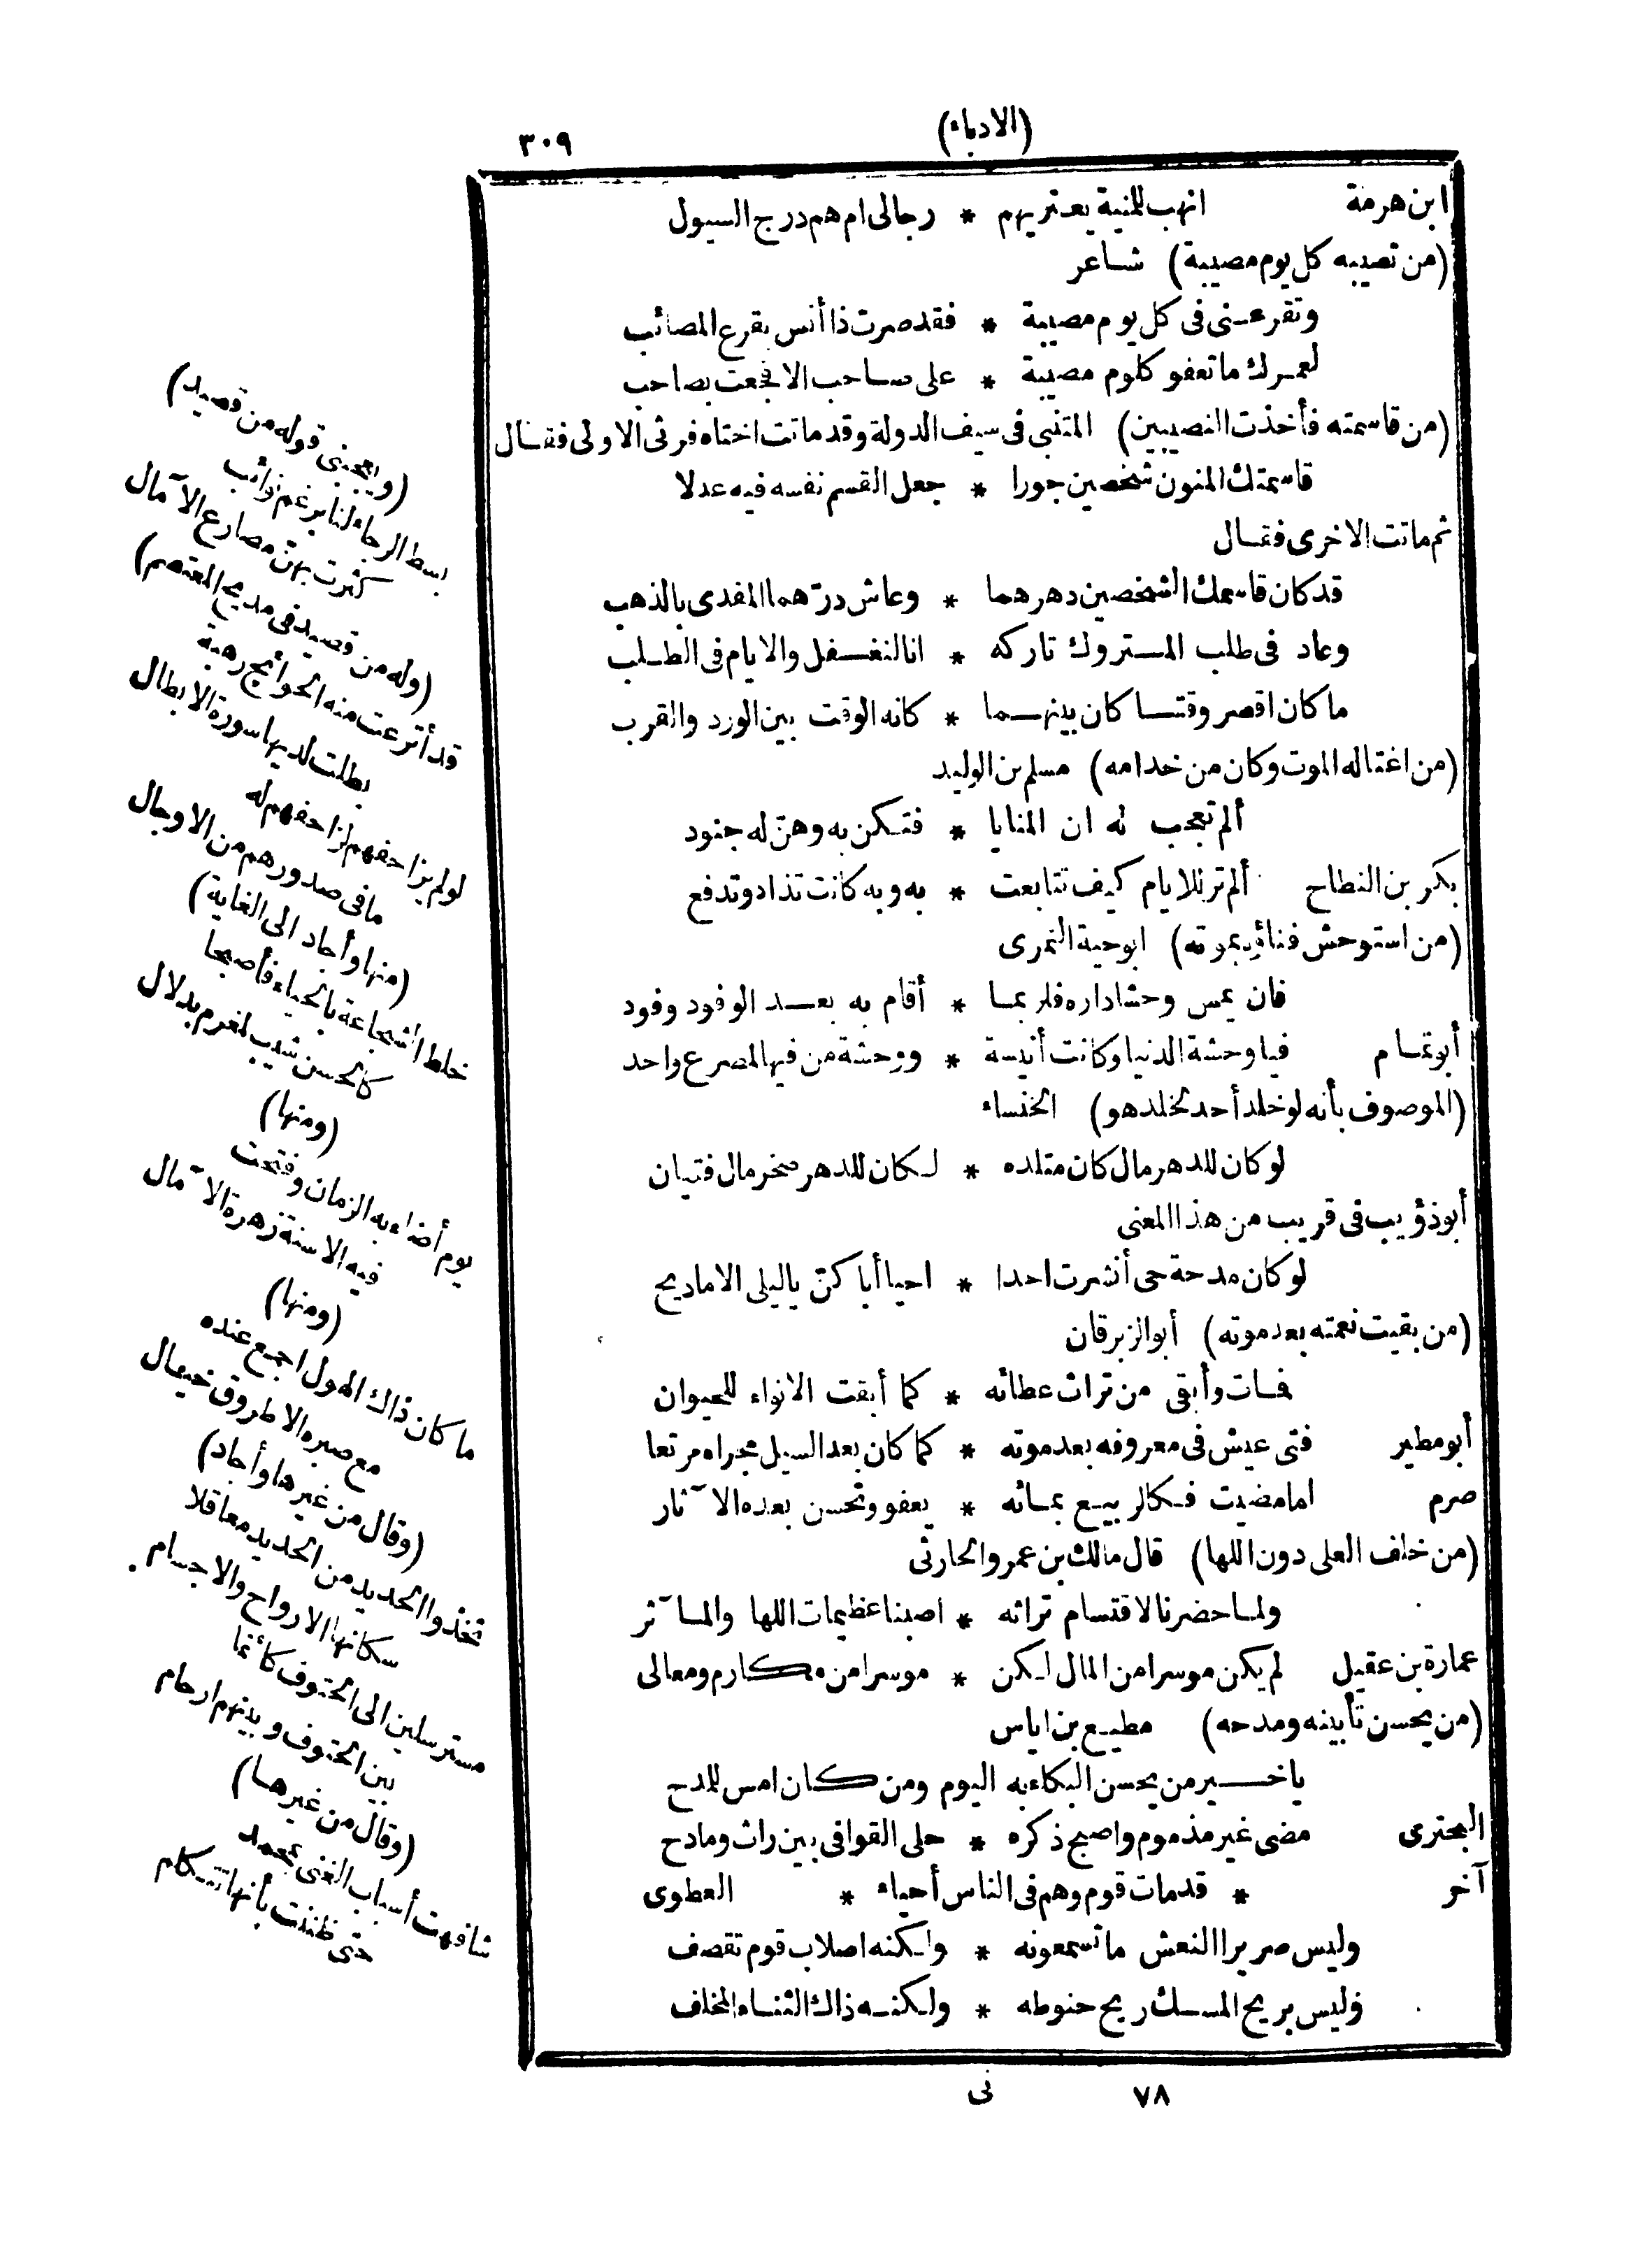 (الادباء)
٣٠٩
ابن هرمة انهب للمنية يعتريهم * رجالى ام هم درج السيول
(من تصيبه كل يوم مصيبة) شاعر
وتقرعنى فى كل يوم مصيبة * فقد صرت ذا أنس بقرع المصائب
لعمرك ما تعفو كلوم مصيبة * على صاحب الا فجعت بصاحب
(من قاسمته فأخذت النصيبين) المتنبى فى سيف الدولة وقد ماتت اختاه فرثى الاولى فقال
قاسمتك المنون شخصين جورا * جعل القسم نفسه فيه عدلا
ثم ماتت الاخرى فقال
قد كان قاسمك الشخصين دهرهما * وعاش درّهما المفدى بالذهب
وعاد فى طلب المتروك تاركه * انا لنغفل والايام فى الطلب
ما كان اقصر وقتا كان بينهما * كانه الوقت بين الورد والقرب
(من اغتاله الموت وكان من خدامه) مسلم بن الوليد
ألم تعجب له ان المنايا * فتكن به وهنّ له جنود
بكر بن النطاح ألم تر للايام كيف تتابعت * به وبه كانت تذاد وتدفع
(من استوحش فناؤه بموته) ابو حية النمرى
فان يمس وحشا داره فلربما * أقام به بعد الوفود وفود
أبو تمام فيا وحشة الدنيا وكانت أنيسة * ووحشة من فيها لمصرع واحد
(الموصوف بأنه لو خلد أحد لخلد هو) الخنساء
لو كان للدهر مال كان متلده * لكان للدهر صخر مال فتيان
أبو ذؤيب فى قريب من هذا المعنى
لو كان مدحة حى أنشرت احدا * احيا أباكنّ ياليلى الاماديح
(من بقيت نعمته بعد موته) أبو الزبرقان
فات وأبقى من تراث عطائه * كما أبقت الانواء للحيوان
أبو مطير فتى عيش فى معروفه بعد موته * كما كان بعد السيل مجراه مرتعا
صرم اما مضيت فكالربيع بمائه * يعفو وتحسن بعده الآثار
(من خلف العلى دون اللها) قال مالك بن عمرو الحارثى
ولما حضرنا لاقتسام تراثه * اصبنا عظيمات اللها والمآثر
عمارة بن عقيل لم يكن موسرا من المال لكن * موسرا من مكارم ومعالى
(من يحسن تأبينه ومدحه) مطيع بن اياس
ياخير من يحسن البكاء به اليوم ومن كان امس للمدح
البحترى مضى غير مذموم واصبح ذكره * حلى القوافى بين راث ومادح
آخر * قدمات قوم وهم فى الناس أحياء * العطوى
وليس صرير النعش ما تسمعونه * ولكنه اصلاب قوم تقصف
وليس بريح المسك ريح حنوطه * ولكنه ذاك الثناء المخلف
٧٨ نى
(ويعجبنى قوله من قصيد)
بسط الرجاء لنا برغم نوائب
كثرت بهنّ مصارع الآمال
(وله من قصيد فى مديح المعتصم)
قد أترعت منه الجوانح رهبة
بطلت لديها سورة الابطال
لولم يزاحفهم لزاحفهم له
ما فى صدورهم من الاوجال
(منها وأجاد الى الغاية)
خلط الشجاعة بالحياء فأصبحا
كالحسن شيب لمغرم بدلال
(ومنها)
يوم أضاء به الزمان وفتحت
فيه الاسنة زهرة الآمال
(ومنها)
ما كان ذاك الهول اجمع عنده
مع صبره الا طروق خيال
(وقال من غيرها وأجاد)
تخذوا الحديد من الحديد معاقلا
سكانها الارواح والاجسام
مسترسلين الى الحتوف كأنما
بين الحتوف وبينهم ارحام
(وقال من غيرها)
شافهت أسباب الغنى بمحمد
حتى ظننت بأنها تتكلم